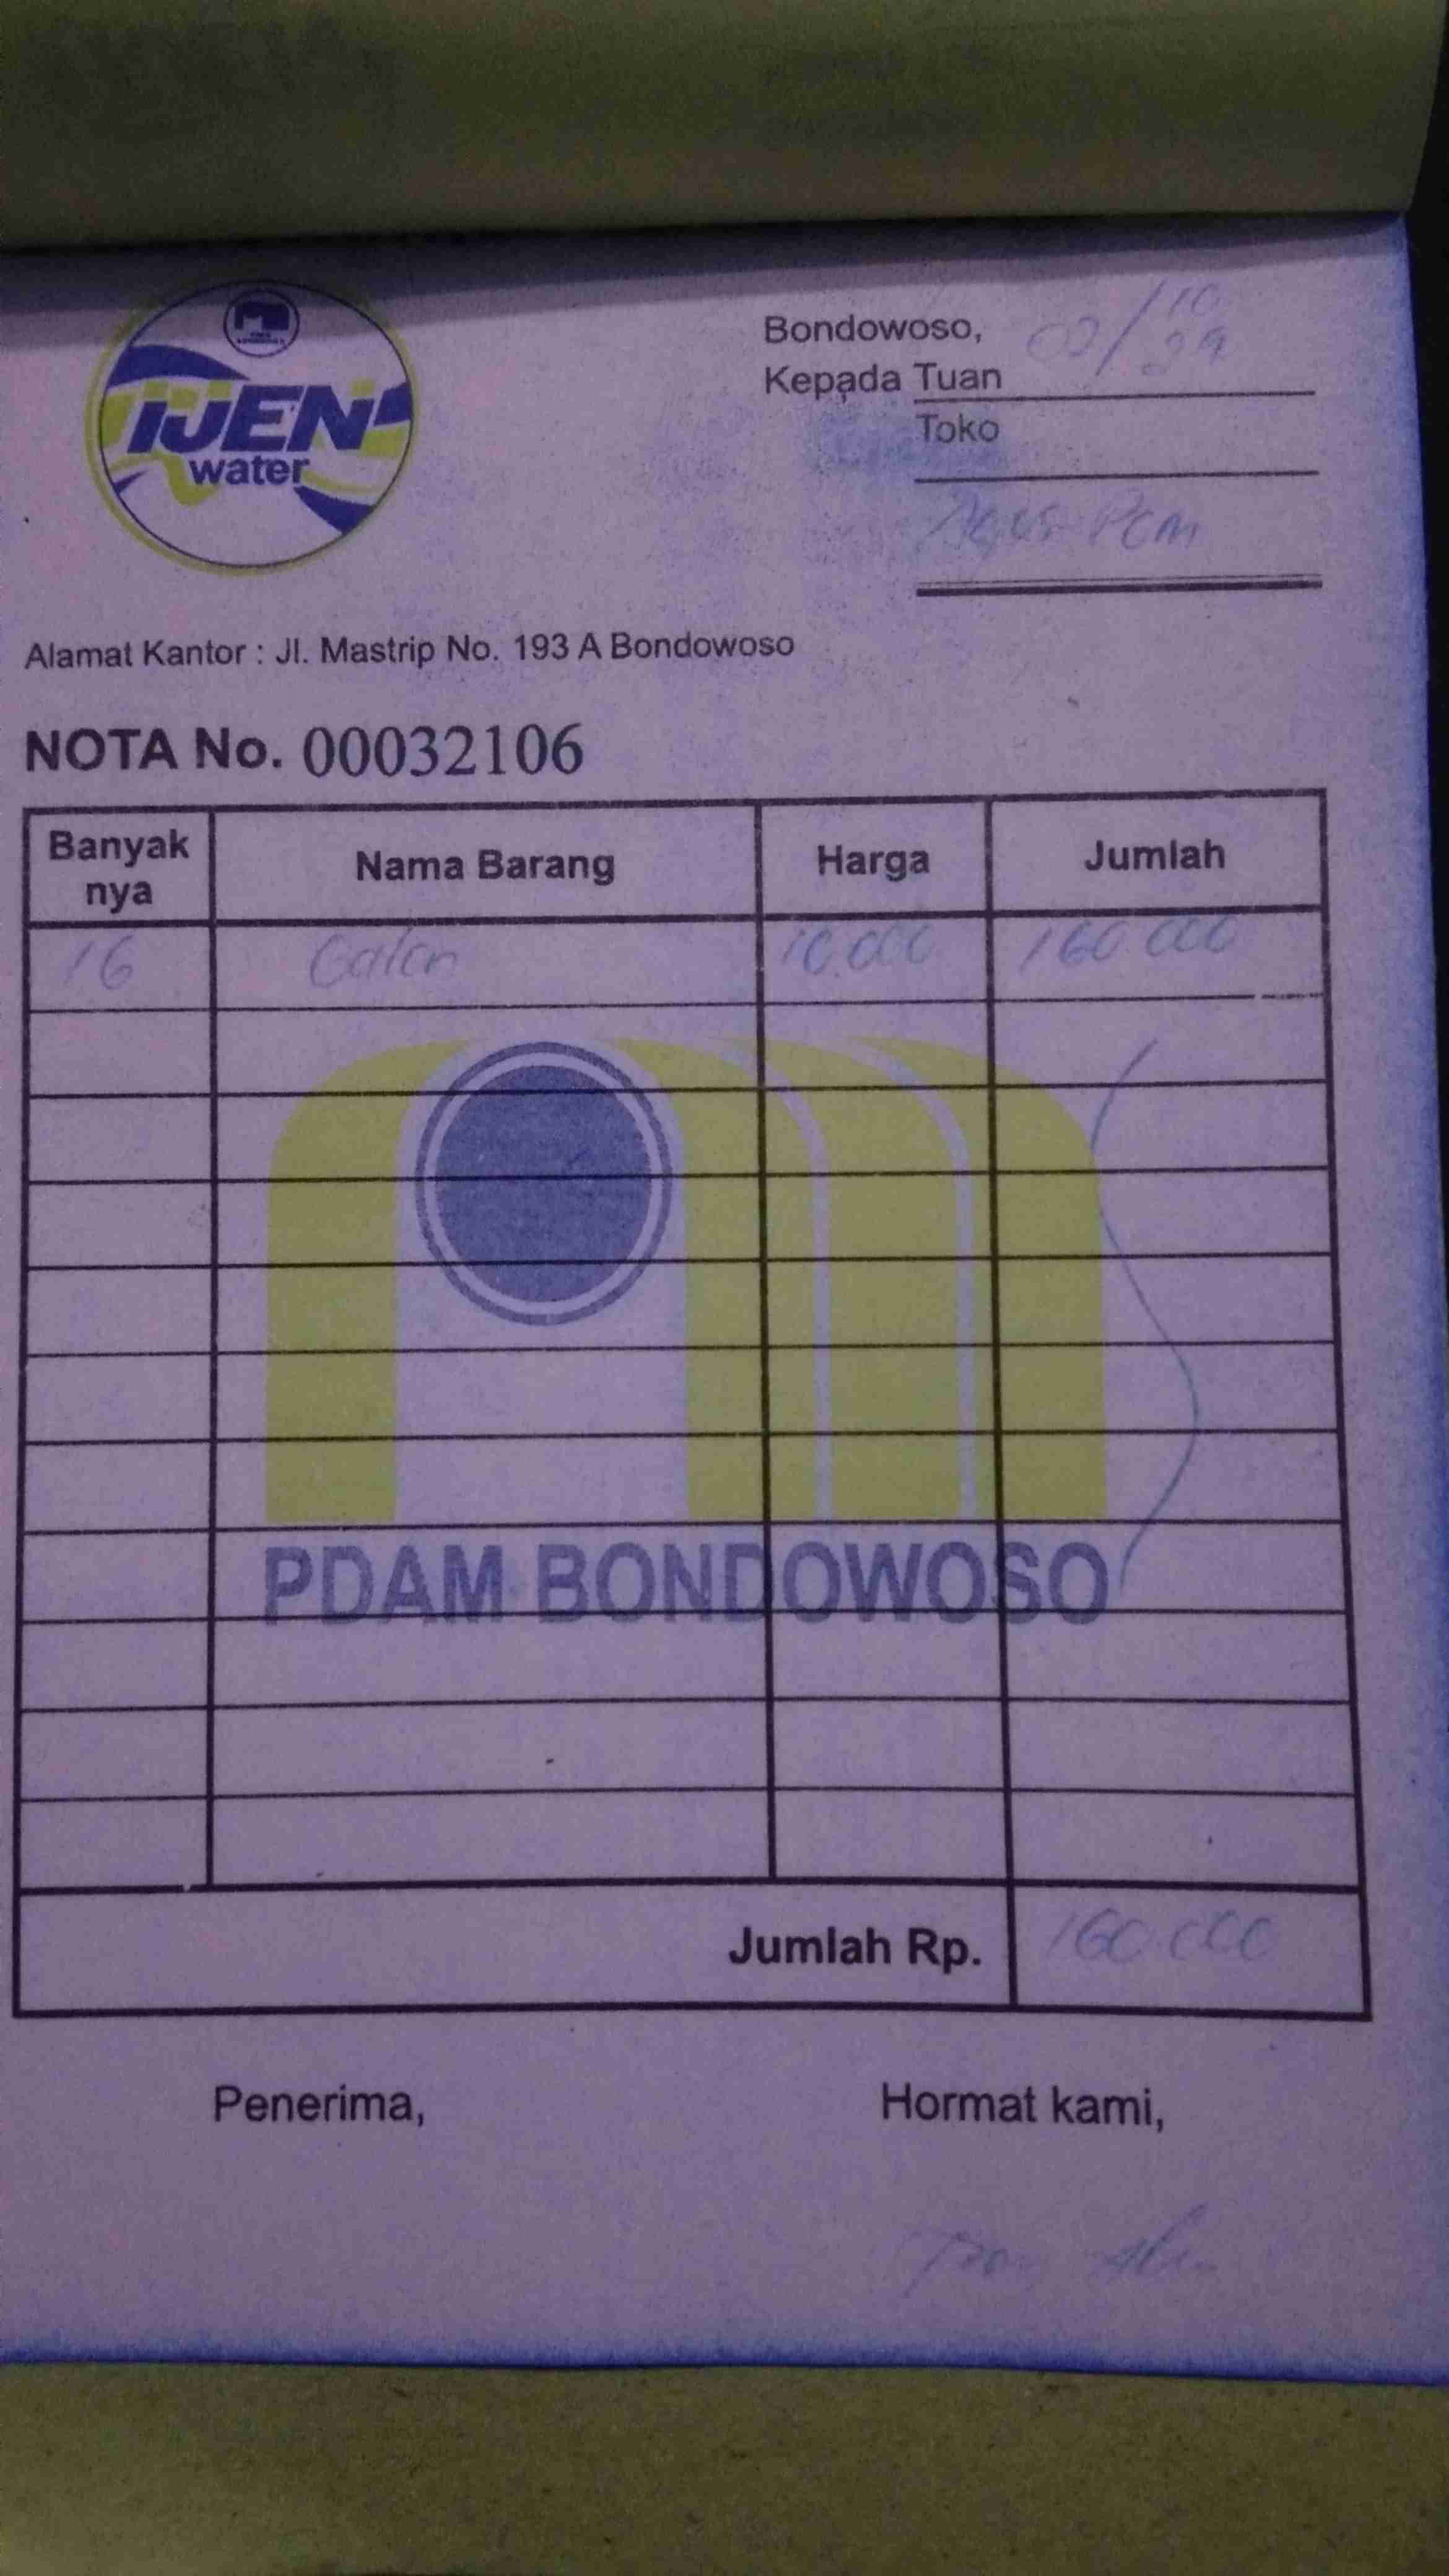 IJEN
water
Bondowoso, 02/10
Kepada Tuan
Toko
Agus PCM
Alamat Kantor : Jl. Mastrip No. 193 A Bondowoso
NOTA No. 00032106
Banyak nya Nama Barang Harga Jumlah
16 Galon 10.000 160.000
PDAM BONDOWOSO
Jumlah Rp. 160.000
Penerima, Hormat kami,